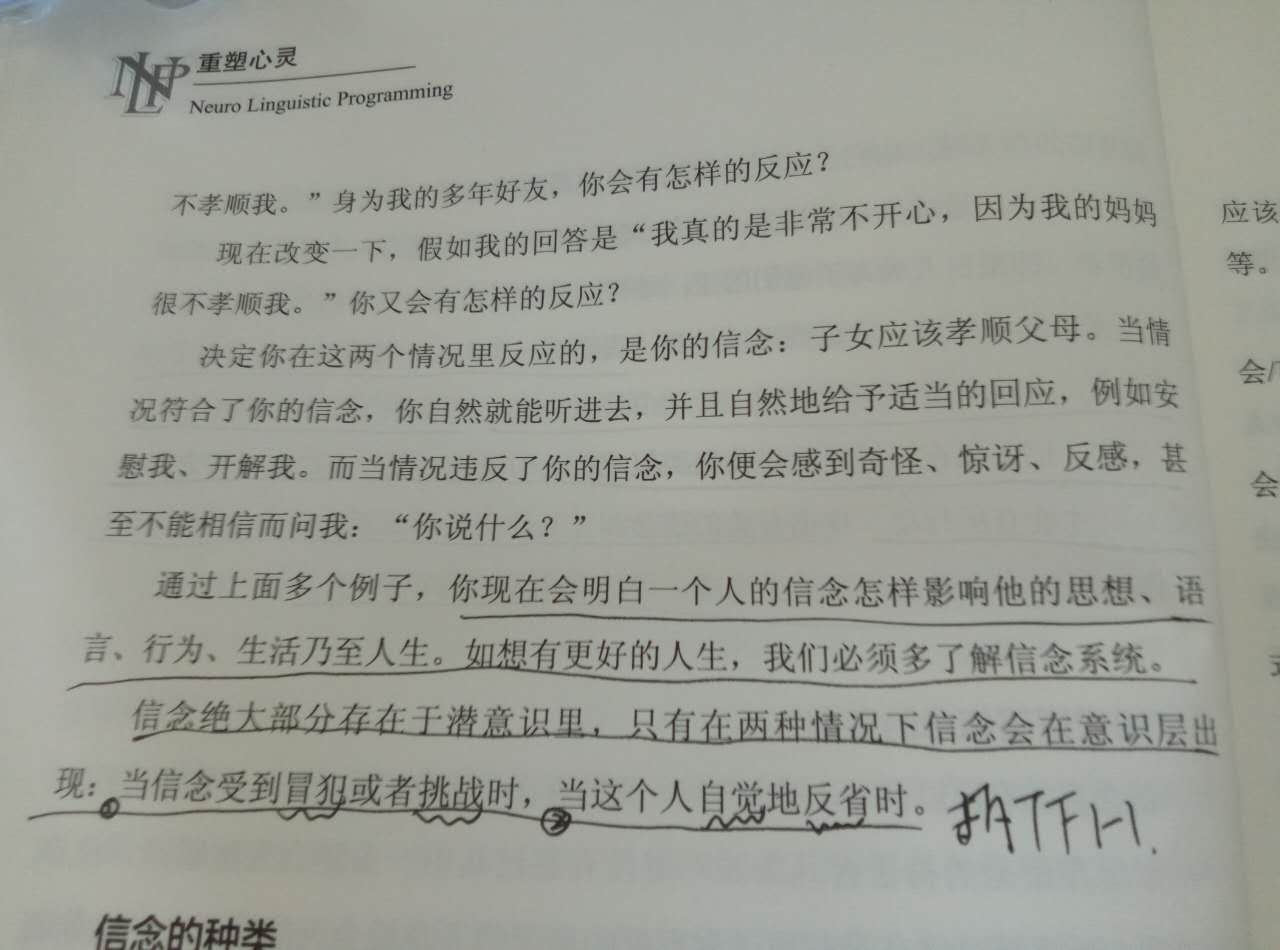 NLP 重塑心灵
Neuro Linguistic Programming
不孝顺我。”身为我的多年好友，你会有怎样的反应？
现在改变一下，假如我的回答是“我真的是非常不开心，因为我的妈妈
很不孝顺我。”你又会有怎样的反应？
决定你在这两个情况里反应的，是你的信念：子女应该孝顺父母。当情
况符合了你的信念，你自然就能听进去，并且自然地给予适当的回应，例如安
慰我、开解我。而当情况违反了你的信念，你便会感到奇怪、惊讶、反感，甚
至不能相信而问我：“你说什么？”
通过上面多个例子，你现在会明白一个人的信念怎样影响他的思想、语
言、行为、生活乃至人生。如想有更好的人生，我们必须多了解信念系统。
信念绝大部分存在于潜意识里，只有在两种情况下信念会在意识层出
现：①当信念受到冒犯或者挑战时，②当这个人自觉地反省时。
信念的种类
应该
等。
会
会